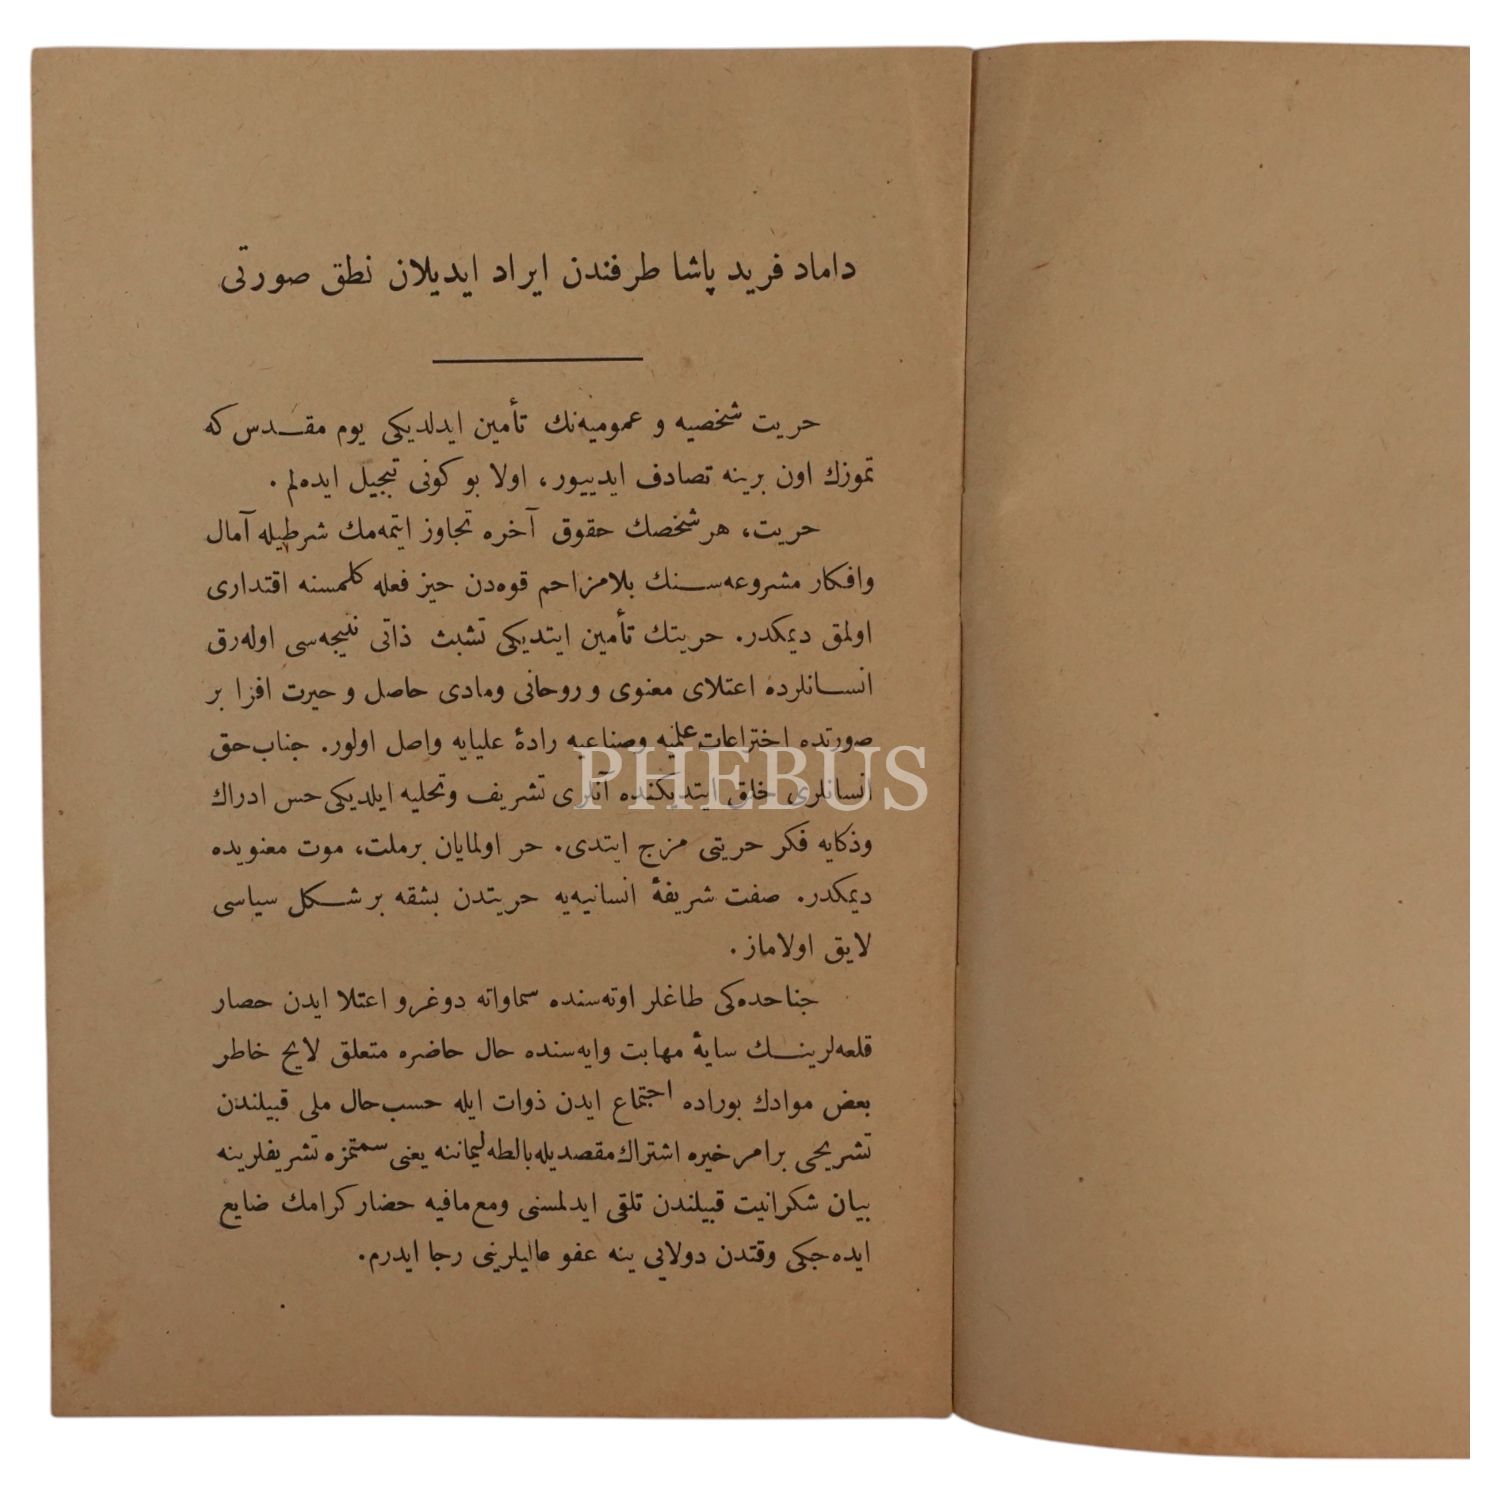 داماد فريد پاشا طرفندن ايراد ايديلان نطق صورتى
حريت شخصيه و عموميه‌نك تأمين ايدلديكى يوم مقـدس كه
تموزك اون برينه تصادف ايدييور، اولا بو كونى تبجيل ايده‌لم .
حريت، هر شخصك حقوق آخره تجاوز ايتمه‌مك شرطيله آمال
وافكار مشروعه‌سـنك بلامزاحم قوه‌دن حيز فعله كلمسنه اقتدارى
اولمق ديمكدر. حريتك تأمين ايتديكى تشبث ذاتى نتيجه‌سى اوله‌رق
انسـانلرده اعتلاى معنوى و روحانى ومادى حاصل و حيرت افزا بر
صورتده اختراعات علميه وصناعيه رادۀ عليايه واصل اولور. جناب حق
انسانلرى خلق ايتديكنده آنلرى تشريف وتحليه ايلديكى حس ادراك
وذكايه فكر حريتى مزج ايتدى. حر اولمايان برملت، موت معنويده
ديمكدر. صفت شريفۀ انسانيه‌يه حريتدن بشقه بر شـكل سياسى
لايق اولاماز .
جناحده‌كى طاغلر اوته‌سنده سماواته دوغرو اعتلا ايدن حصار
قلعه‌لرينـك سايۀ مهابت وايه‌سنده حال حاضره متعلق لايح خاطر
بعض موادك بوراده اجتماع ايدن ذوات ايله حسب حال ملى قبيلندن
تشريحى برامر خيره اشتراك مقصديله بالطه ليماننه يعنى سمتمزه تشريفلرينه
بيان شكرانيت قبيلندن تلقى ايدلمسنى ومع مافيه حضار كرامك ضايع
ايده‌جكى وقتدن دولايى ينه عفو عاليلرينى رجا ايدرم.
PHEBUS